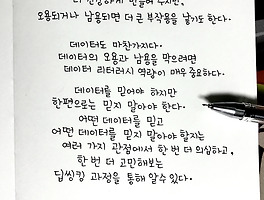 더 신중하게 만들어 주지만,
오용되거나 남용되면 더 큰 부작용을 낳기도 한다.
데이터도 마찬가지다.
데이터의 오용과 남용을 막으려면
데이터 리터러시 역량이 매우 중요하다.
데이터를 믿어야 하지만
한편으로는 믿지 말아야 한다.
어떤 데이터를 믿고
어떤 데이터를 믿지 말아야 할지는
여러 가지 관점에서 한 번 더 의심하고,
한 번 더 고민해보는
딥씽킹 과정을 통해 알 수 있다.